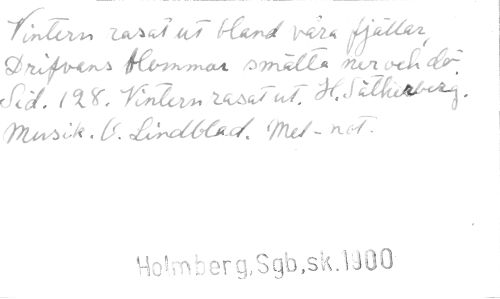 Vintern rasat ut bland våra fjällar,
Drifvans blommor smälta ner och dö.
Sid. 128. Vintern rasat ut. H. Sätherberg.
Musik. O. Lindblad. Mel-not.
Holmberg, Sgb, sk. 1900